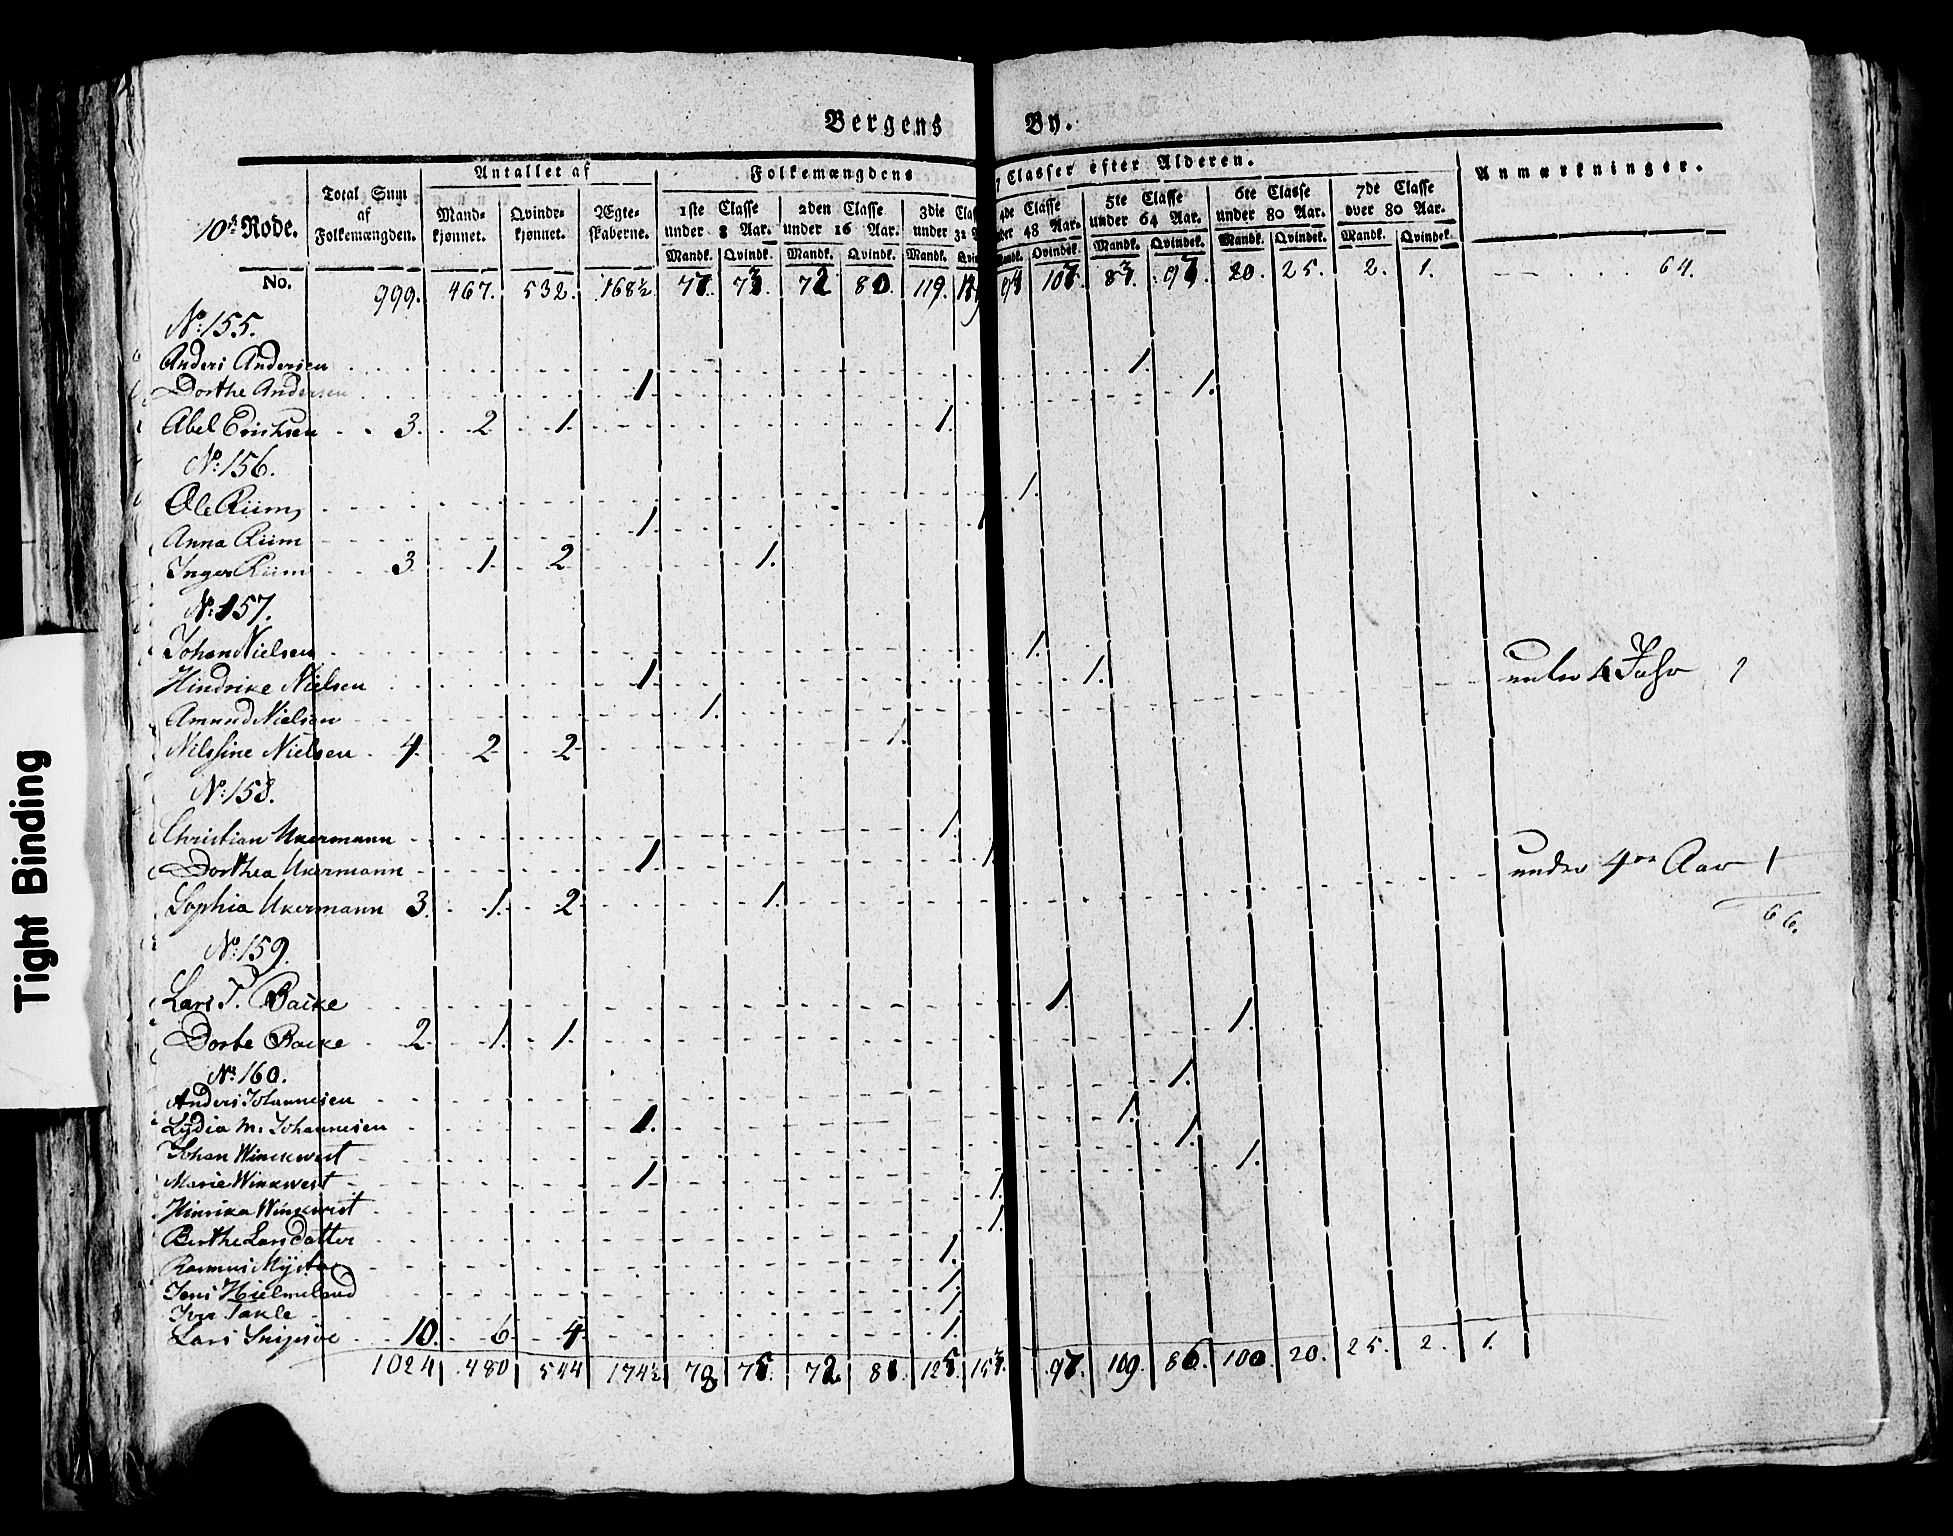 Bergens By.
10de Rode.
No.
Total Sum af Folkemængden.
Antallet af
Mandkjønnet.
Qvindekjønnet.
Ægteskaberne.
Folkemængdens
Classer efter Alderen.
1ste Classe under 8 Aar.
2den Classe under 16 Aar.
3die
under
4de Classe
48 Aar.
5te Classe under 64 Aar.
6te Classe under 80 Aar.
7de Classe over 80 Aar.
Anmærkninger.
Mandk. Qvindk. Mandk. Qvindk. Mandk. Qvindek. Mandk. Qvindek. Mandk. Qvindek. Mandk. Qvindek.
999. 467. 532. 168½ 72 80. 119. 20. 25. 2. 1. 64.
No: 155.
Anders Andersen 1.
Dorthe Andersen 1 1.
Abel Erichsen 3. 2 1. 1.
No: 156.
Ole Riim 1.
Anna Riim 1.
Inger Riim 3. 1. 2 1.
No: 157.
Johan Nielsen 1.
Hindrike Nielsen 1 1. unter 4 Jahr 1
Amund Nielsen 1.
Nilssine Nielsen 4. 2 2 1.
No: 158.
Christian Ukermann 1.
Dorthea Ukermann 1 1. under 4re Aar 1
Sophia Ukermann 3. 1. 2 1. 66.
No: 159.
Lars T. Backe 1.
Dorte Backe 2. 1. 1. 1.
No: 160.
Anders Johannesen 1.
Lydia M: Johannesen 1. 1.
Johan Winckwest 1.
Marie Winkwest 1. 1.
Hinrika Winkwist 1.
Berthe Larsdatter 1.
Rasmus 1.
Jens Hielmeland 1.
Iver Takle 1.
Lars 10. 6 4 1.
1024 480 544 174½ 78 75. 72. 81. 125. 97. 109. 86. 100. 20. 25. 2. 1.
Tight Binding